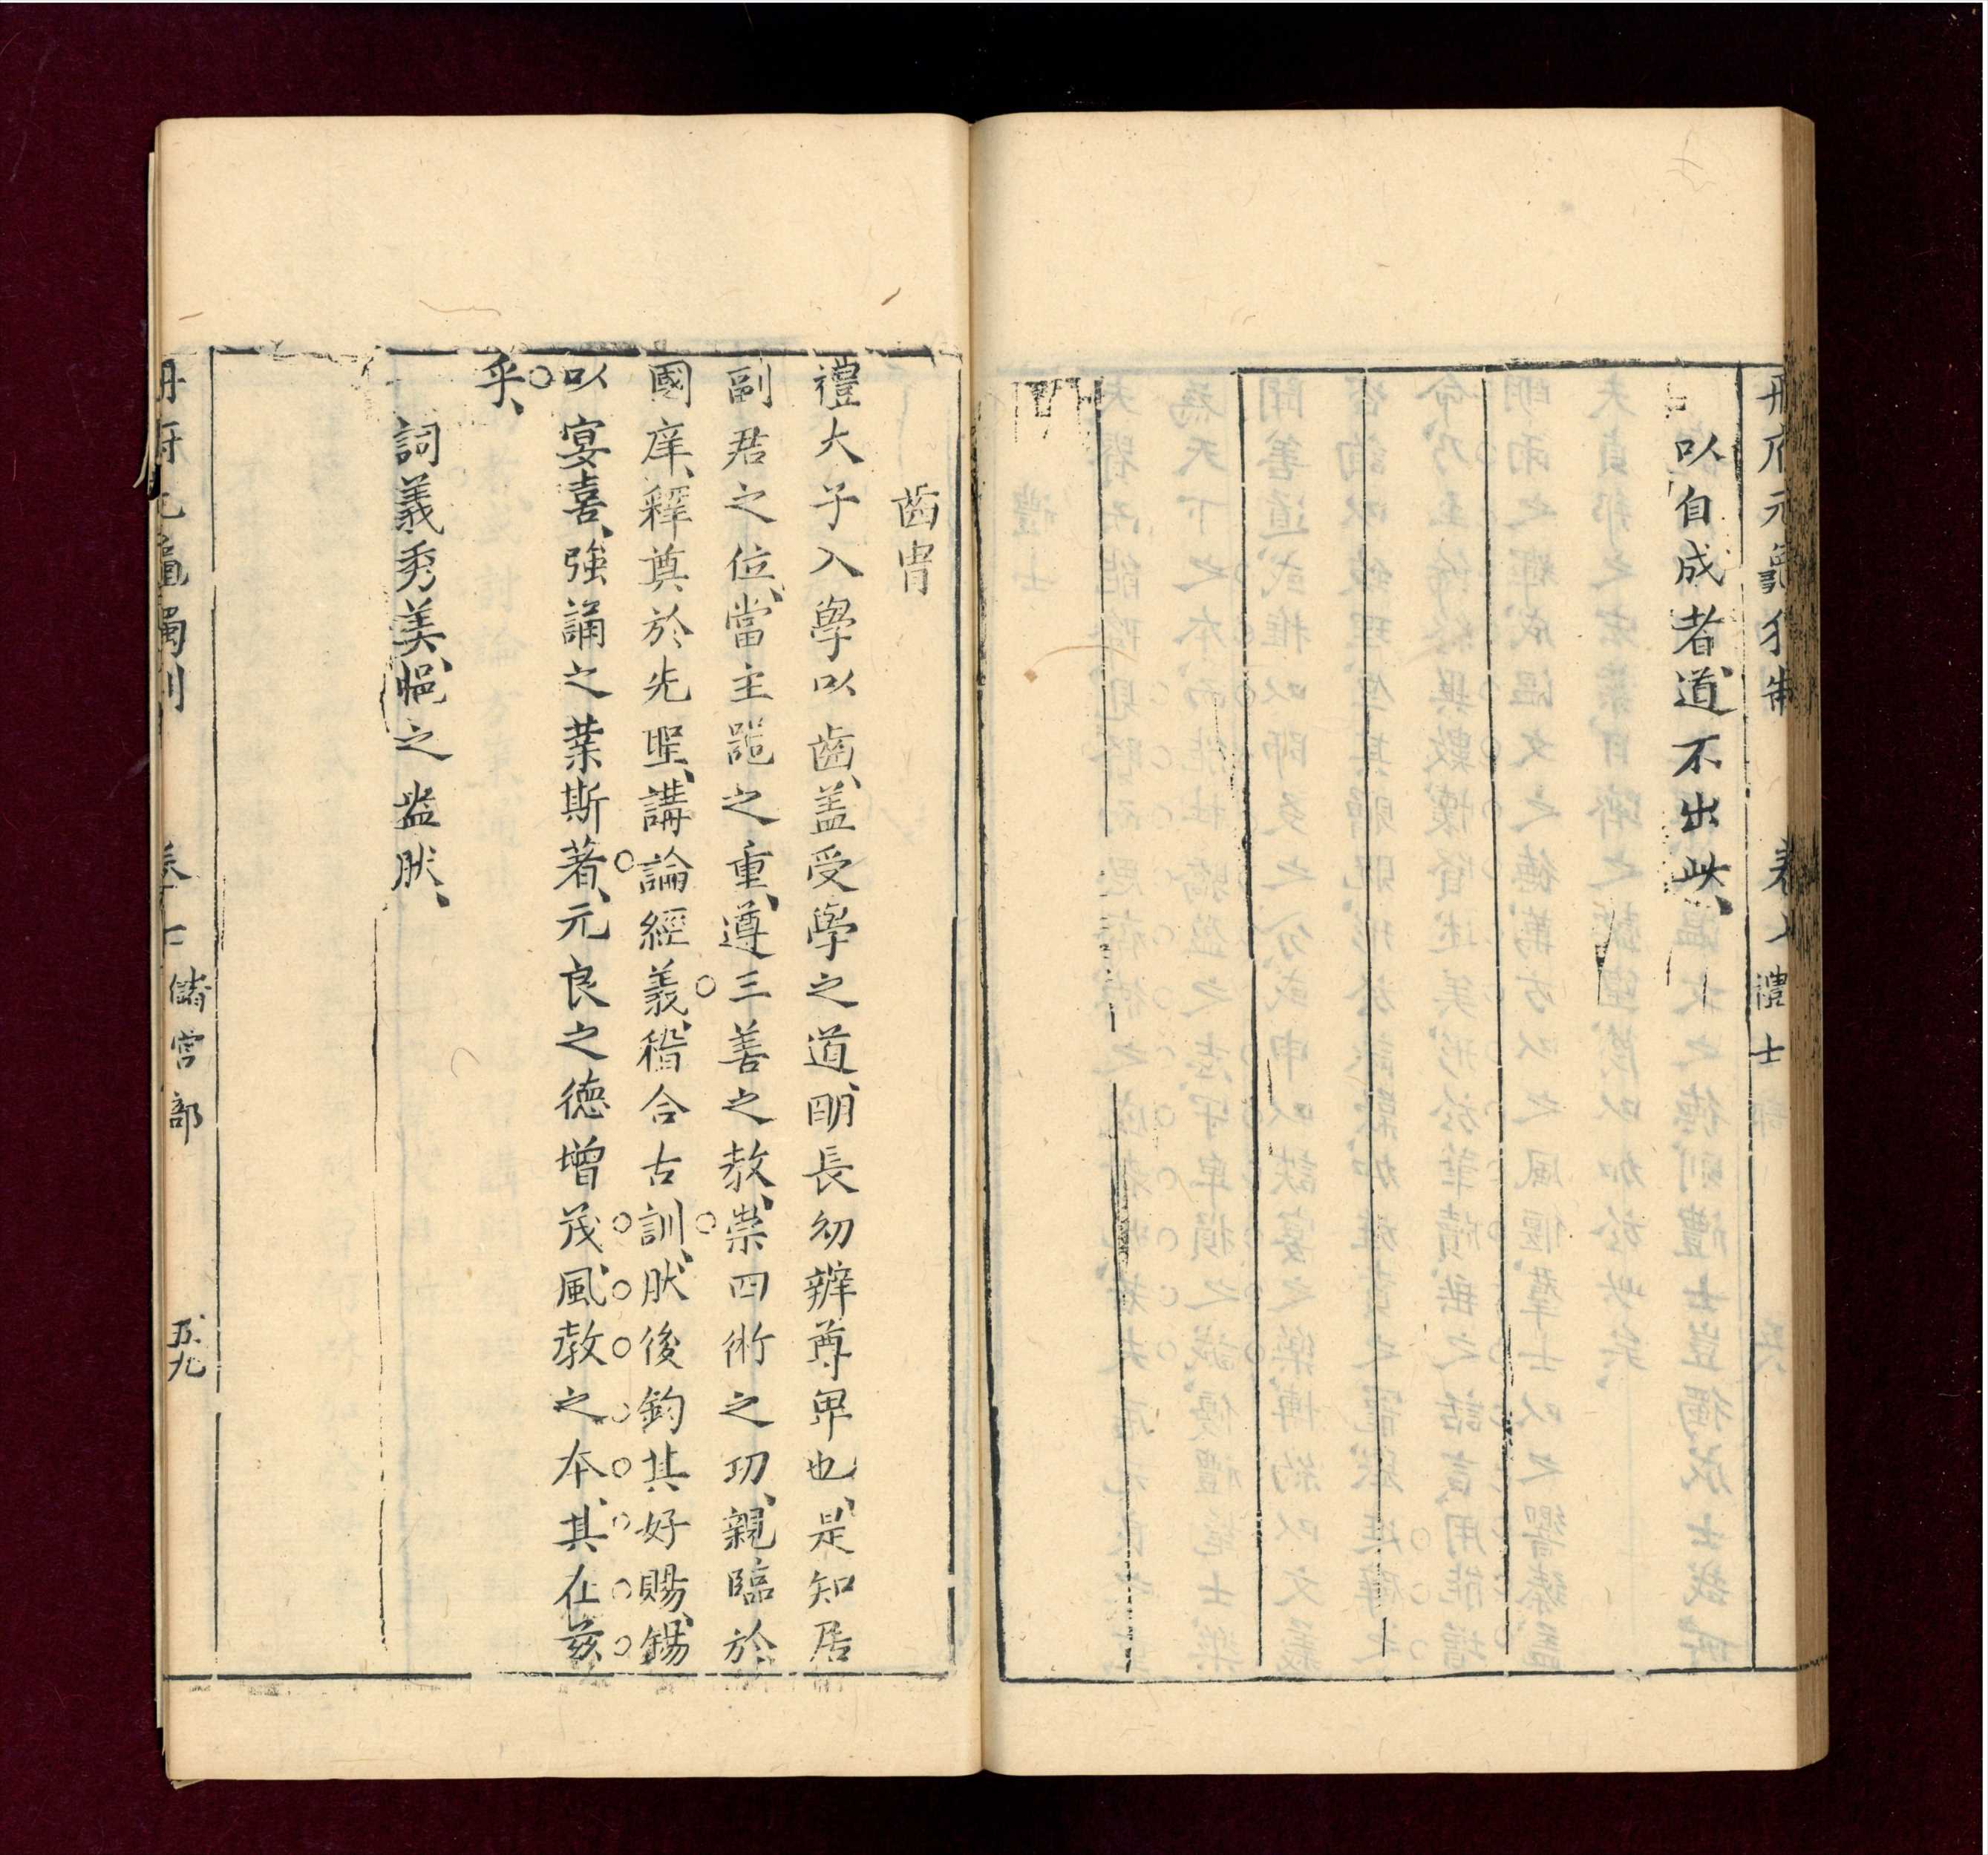 冊府元龜獨制 卷七 禮士
以自成者道不出此、
齒冑
禮大子入學以齒、盖受學之道、明長幼辨尊卑也、是知居
副君之位、當主鬯之重、遵三善之教、崇四術之功、親臨於
國庠、釋奠於先聖、講論經義、稽合古訓、肰後鈞其好賜、錫
以宴喜、強誦之業斯著、元良之德增茂、風教之本、其在茲
乎、
詞義秀美、挹之盎肰、
冊府元龜獨制 卷七 儲宮部 五九